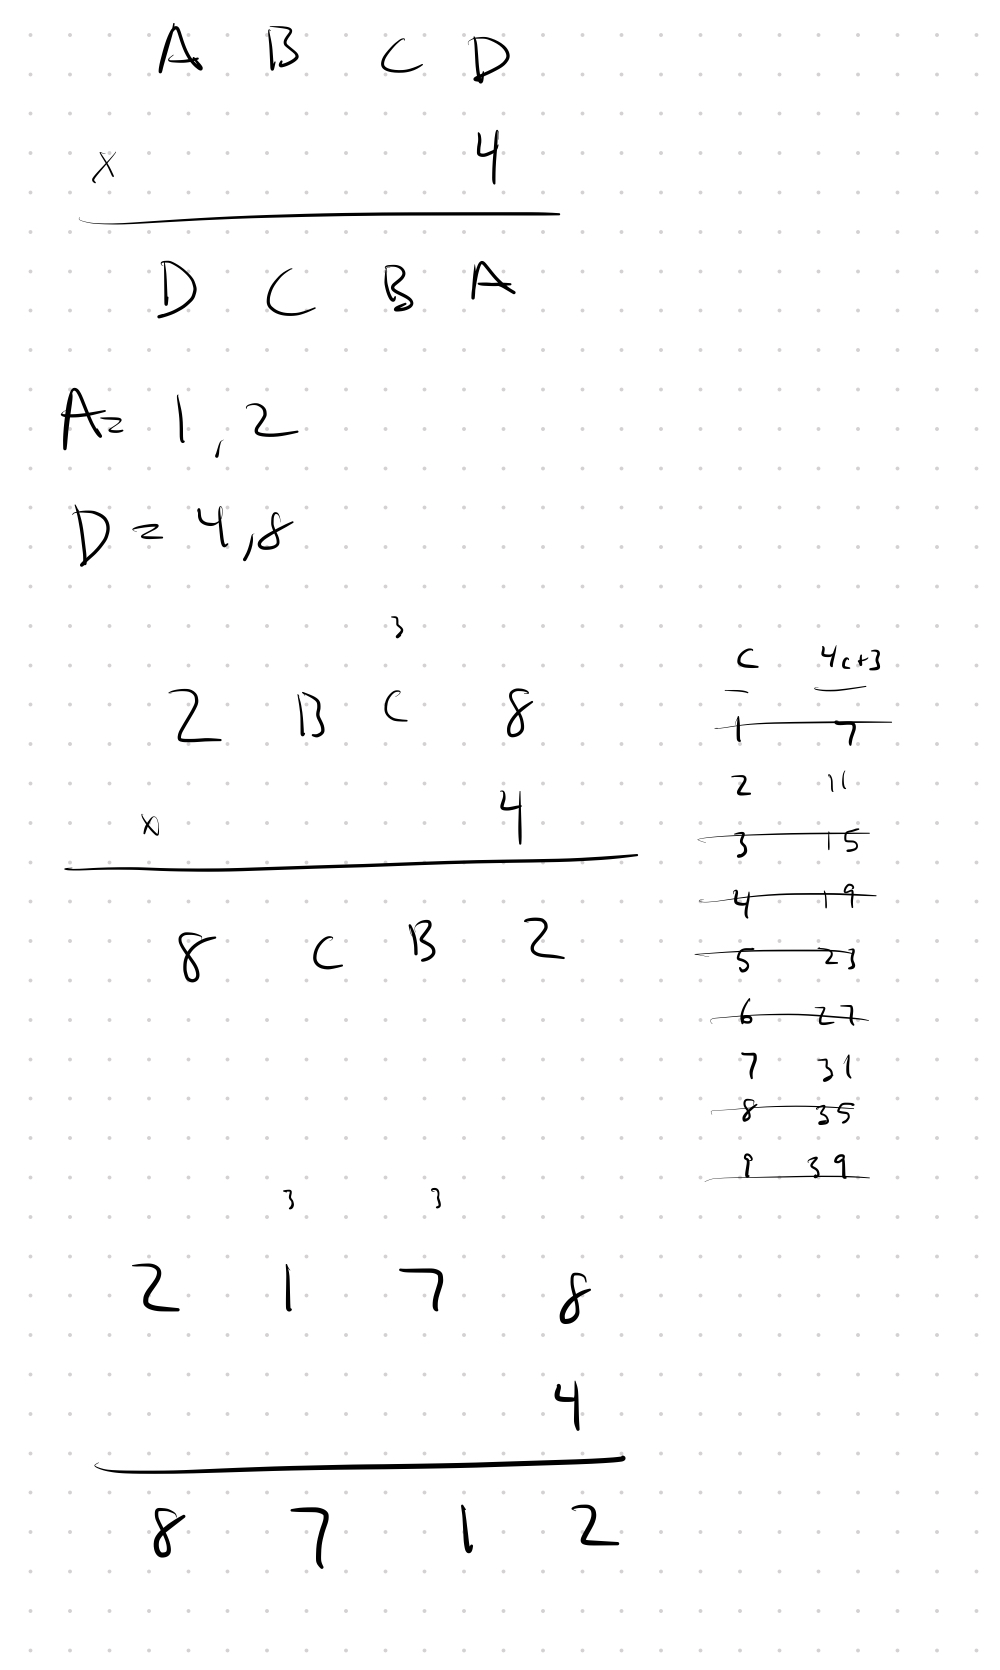 A B C D
x 4
D C B A
A= 1, 2
D = 4, 8
3
2 B C 8
x 4
8 C B 2
C 4c+3
1 7
2 11
3 15
4 19
5 23
6 27
7 31
8 35
9 39
3 3
2 1 7 8
4
8 7 1 2